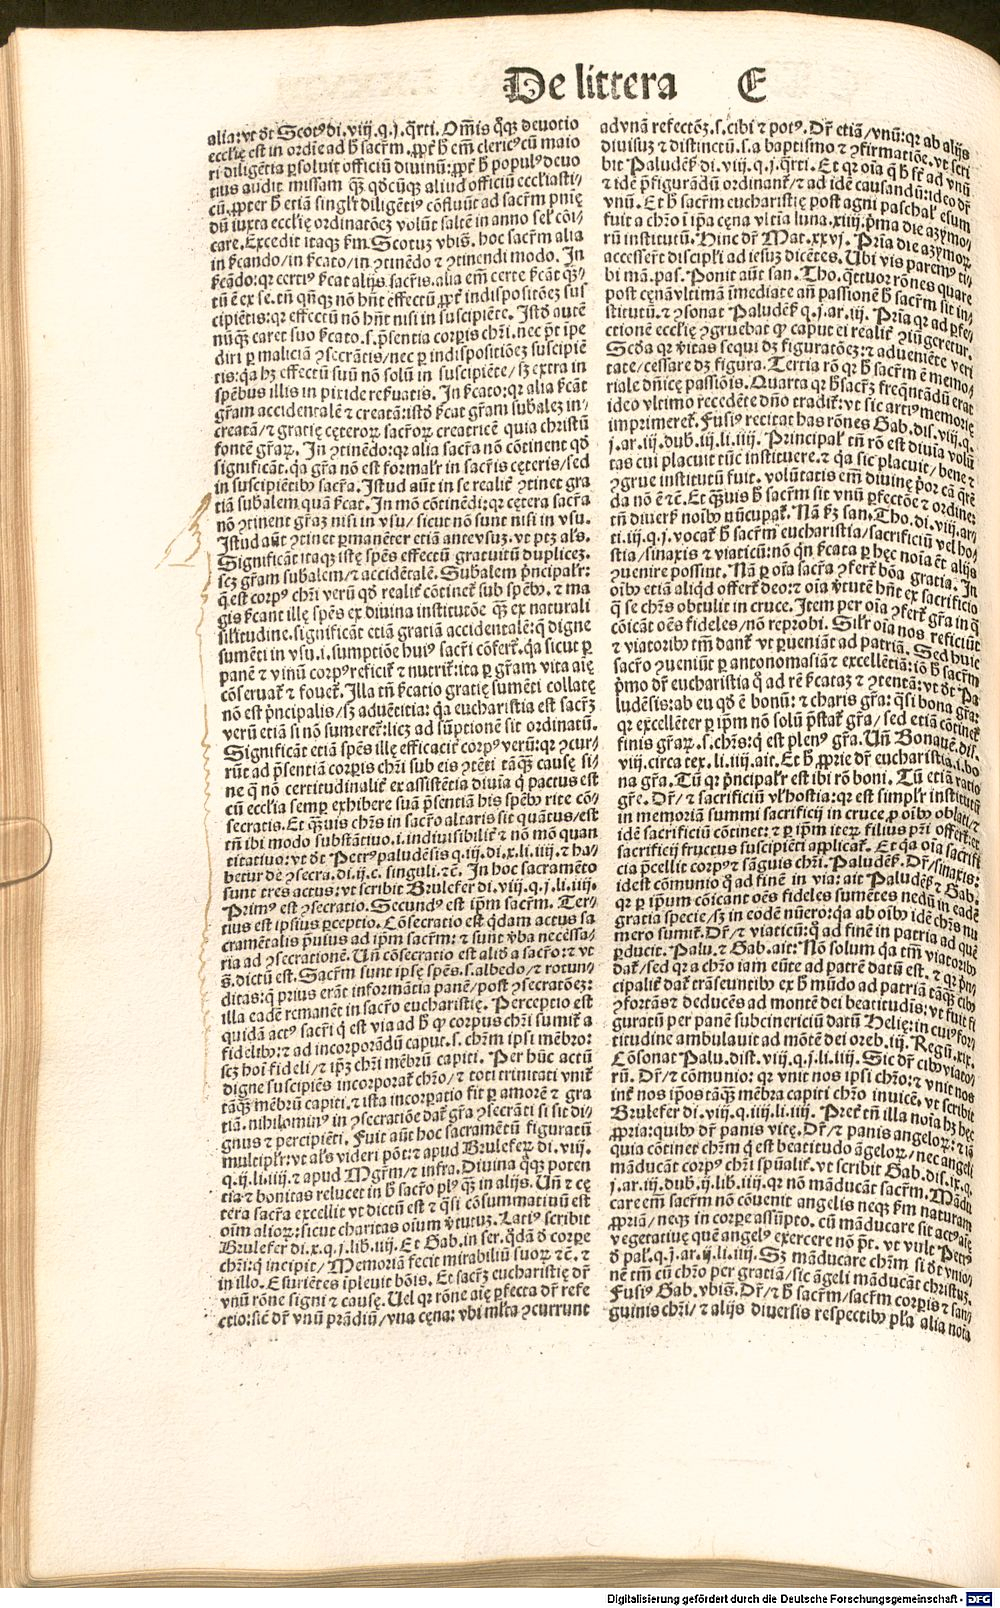 De littera E
alia: vt dt̄ Scotꝰ di. viij. q. j. q̄rti. Om̄is qͦꝫ deuotio
eccl̄ie est in ordīe ad h̄ sacr̄m. ꝓpt̄ h̄ em̄ clericꝰ cū maio
ri diligētia ꝑsoluit officiū diuinū: ꝓpt̄ h̄ populꝰ deuo
tius audit missam qꝫ̄ qd̓cūqꝫ aliud officiū eccl̄iasti-
cū. ꝓpter h̄ etiā singl̓r diligētiꝰ cōfluūt ad sacr̄m pn̄ię
dū iuxta eccl̄ie ordinatōeꝫ volūt saltē in anno sel̓ cōi-
care. Excedit itaqꝫ ẜm. Scotuꝫ vbis̄. hoc sacr̄m alia
in ẜcando/ in ẜcato/ in ꝯtinēdo ⁊ ꝯtinendi modo. In
ẜcādo: qꝛ certiꝰ ẜcat alijs sacr̄is. alia em̄ certe ẜcāt qꝫ̄-
tū ē ex se. tn̄ qn̄qꝫ nō hn̄t effectū ꝓpt̄ indispositōeꝫ sus
cipiētis: qꝛ effectū nō hn̄t nisi in suscipiēte. Istd̓ autē
nūqꝫ̄ caret suo ẜcato. s. pn̄sentia corpis chr̄i. nec pn̄t īpe
diri ꝑ maliciā ꝯsecrātis/ nec ꝑ indispositiōeꝫ suscipiē
tis: qͣ hꝫ effectū suū nō solū in suscipiēte/ sꝫ extra in
spēbus illis in pixide reẜuatis. In ẜcato: qꝛ alia ẜcāt
gr̄am accidentalē ⁊ creatā: istd̓ ẜcat gr̄am subaleꝫ in-
creatā/ ⁊ gratię cęteroꝝ sacr̄oꝝ creatricē quia christū
fontē gr̄aꝝ. In ꝯtinēdo: qꝛ alia sacr̄a nō cōtinent qd̓
significāt. qͣ gr̄a nō est formal̓r in sacr̄is cęteris/ sed
in suscipiētibꝰ sacr̄a. Istud aūt in se realit̓ ꝯtinet gra
tiā subalem quā ẜcat. In mō cōtinēdi: qꝛ cętera sacr̄a
nō ꝯtinent gr̄aꝫ nisi in vsu/ sicut nō sunt nisi in vsu.
Istud aūt ꝯtinet ꝑmanēter etiā ante vsuꝫ. vt ptꝫ als̄.
Significāt itaqꝫ istę spēs effectū gratuitū dupliceꝫ.
scꝫ gr̄am subalem/ ⁊ accidētalē. Subalem pͥncipalr̄:
q̄ est corpꝰ chr̄i verū qd̓ realit̓ cōtinet̓ sub spēbꝰ. ⁊ ma
gis ẜcant illę spēs ex diuina institutōe qꝫ̄ ex naturali
sil̓itudine. significāt etiā gratiā accidentalē: q̄ digne
sumēti in vsu. i. sumptiōe huiꝰ sacr̄i cōfert̓. qͣ sicut ꝑ
panē ⁊ vinū corpꝰ reficit̓ ⁊ nutrit̓: ita ꝑ gr̄am vita aīę
cōseruat̓ ⁊ fouet̓. Illa tn̄ ẜcatio gratię sumēti collatę
nō est pͥncipalis/ sꝫ aduētitia: qͣ eucharistia est sacr̄ꝫ
verū etiā si nō sumeret̓: licꝫ ad sūptionē sit ordinatū.
Significāt etiā spēs illę efficacit̓ corpꝰ verū: qꝛ ꝯcur-
rūt ad pn̄sentiā corpis chr̄i sub eis ꝯtēti tāqꝫ̄ causę si-
ne q̄ nō certitudinalit̓ ex assistētia diuīa q̄ pactus est
cū eccl̄ia semꝑ exhibere suā pn̄sentiā his spēbꝰ rite cō-
secratis. Et qꝫ̄uis chr̄s in sacr̄o altaris sit quātus/ est
tn̄ ibi modo substātiuo. i. indiuisibilit̓ ⁊ nō mō quan
titatiuo: vt dt̄ Petrꝰ paludēsis q. iij. di. x. li. iiij. ⁊ ha-
betur de ꝯsecra. di. ij. c. singuli. ⁊c̄. In hoc sacramēto
sunt tres actus: vt scribit Brulefer di. viij. q. j. li. iiij.
Primꝰ est ꝯsecratio. Secundꝰ est ipm̄ sacr̄m. Ter-
tius est ipsius ꝑceptio. Cōsecratio est qͥdam actus sa
cramētalis pͥuius ad ipm̄ sacr̄m: ⁊ sunt v̓ba necessa-
ria ad ꝯsecrationē. Un̄ cōsecratio est aliđ a sacr̄o: ⁊ vt
s̄. dictū est. Sacr̄m sunt ipsę spēs. s. albedo/ ⁊ rotun-
ditas: q̄ prius erāt informātia panē/ post ꝯsecratōeꝫ:
illa eadē remanēt in sacr̄o eucharistię. Perceptio est
quidā actꝰ sacr̄i q̄ est via ad h̄ qꝫ corpus chr̄i sumit̓ a
fidelibꝰ: ⁊ ad incorporādū caput. s. chr̄m ipsi mēbroꝝ
scꝫ hoī fideli/ ⁊ ipꝫ chr̄i mēbrū capiti. Per hūc actū
digne suscipiēs incorporat̓ chr̄o/ ⁊ toti trinitati vnit̓
tāqꝫ̄ mēbrū capiti. ⁊ ista incorpatio fit ꝑ amorē ⁊ gra
tiā. nihilominꝰ in ꝯsecratiōe dat̓ gr̄a ꝯsecrāti si sit di-
gnus ⁊ percipiēti. Fuit aūt hoc sacramētū figuratū
multipl̓r: vt al̓s videri pōt: ⁊ apud Bruleferꝝ di. viij.
q. ij. li. iiij. ⁊ apud Mgr̄m/ ⁊ infra. Diuina qͦꝫ poten
tia ⁊ bonitas relucet in h̄ sacr̄o plꝰ qꝫ̄ in alijs. Un̄ ⁊ cę
tera sacr̄a excellit vt dictū est ⁊ qͣsi cōsummatiuū est
oīm alioꝝ: sicut charitas oium v̓tutuꝫ. Latiꝰ scribit
Brulefer di. x. q. j. lib. iiij. Et Gab. in ser. qͦdā đ corꝑe
chr̄i: q̄ incipit/ Memoriā fecit mirabiliū suoꝝ ⁊c̄. ⁊
in illo. Esuriētes ipleuit bōis. Et sacr̄ꝫ eucharistię dr̄
vnū rōne signi ⁊ causę. Uel qꝛ rōne aīę ꝑfecta dr̄ refe
ctio: sic̄ dr̄ vnū prādiū/ vna cęna: vbi ml̓ta ꝯcurrunt
ad vnā refectōeꝫ. s. cibi ⁊ potꝰ. Dr̄ etiā/ vnū: qꝛ ab alijs
diuisuꝫ ⁊ distinctū. s. a baptismo ⁊ ꝯfirmatiōe. vt scri
bit Paludeñ. di. viij. q. j. q̄rti. Et qꝛ oīa q̄ h̄ fr̄ ad vnū
⁊ idē pͥfigurādū ordinant̓/ ⁊ ad idē causandū: ideo dr̄
vnū. Et h̄ sacr̄m eucharistię post agni paschal̓ esum
fuit a chr̄o ī ipa cęna vltīa luna. xiiij. pͥma die azymo-
rū institutū. Hinc dr̄ Mat. xxvj. Prīa die azymoꝝ
accesser̄t discipl̓i ad iesuꝫ dicētes. Ubi vis paremꝰ ti-
bi mā. pas. Ponit aūt san. Tho. qͣttuor rōnes quare
post cęnā vltimā īmediate an̄ passionē h̄ sacr̄m sit in-
stitutū. ⁊ ꝯsonat Paludeñ q. j. ar. iij. Prīa qꝛ ad ꝑfe-
ctionē eccl̄ię ꝯgruebat qꝫ caput ei realit̓ ꝯiūgeretur.
Scd̓a qꝛ v̓itas sequi dꝫ figuratōeꝫ: ⁊ adueniēte veri
tate/ cessare dꝫ figura. Tertia rō qꝛ h̄ sacr̄m ē memo-
riale dn̄icę passiōis. Quarta qꝛ h̄ sacr̄ꝫ freqn̄tādū erat
ideo vltimo recedēte dn̄o tradit̓: vt sic artiꝰ memorię
imprimeret̓. Fusiꝰ recitat has rōnes Gab. dis. viij. q.
j. ar. iij. dub. iij. li. iiij. Principal̓ tn̄ rō est diuīa volū
tas cui placuit tūc instituere. ⁊ qͣ sic placuit/ bene ⁊
ꝯgrue institutū fuit. volūtatis em̄ diuinę pͥor eā q̄rē
da nō ē ⁊c̄. Et qꝫ̄uis h̄ sacr̄m sit vnū ꝑfectōe ⁊ ordine:
tn̄ diuerẜ noībꝰ nūcupat̓. Nā ẜꝫ san. Tho. di. viij. ar-
ti. iij. q. j. vocat̓ h̄ sacr̄m eucharistia/ sacrificiū vel ho-
stia/ sinaxis ⁊ viaticū: nō qͥn ẜcata ꝑ hęc noīa ēt alijs
ꝯuenire possint. Nā ꝑ oīa sacr̄a ꝯfert̓ bōa gratia. In
oībꝰ etiā aliqͥd offert̓ deo: ⁊ oīa v̓tutē hn̄t ex sacrificio
q̄ se chr̄s obtulit in cruce. Item per oīa ꝯfert̓ gr̄a in q̄
cōicāt oēs fideles/ nō reprobi. Sil̓r oīa nos reficiūt
⁊ viatoribꝰ tm̄ dant̓ vt ꝑueniāt ad patriā. Sed huic
sacr̄o ꝯueniūt ꝑ antonomasiā ⁊ excellētiā: iō h̄ sacr̄m
pͥmo dr̄ eucharistia qͦ ad rē ẜcataꝫ ⁊ ꝯtentā: vt dt̄ Pa
ludēsis: ab eu qd̓ ē bonū: ⁊ charis gr̄a: qͣsi bona gr̄a:
qꝛ excellēter ꝑ ip̄m nō solū pͥstat̓ gr̄a/ sed etiā cōtinet̓
finis gr̄aꝝ. s. chr̄s: q̄ est plenꝰ gr̄a. Un̄ Bonauē. dis.
viij. circa tex. li. iiij. ait. Et h̄ ꝓprie dr̄ eucharistia. i. bo
na gr̄a. Tū qꝛ pͥncipal̓r est ibi rō boni. Tū etiā ratio
gr̄e. Dr̄/ ⁊ sacrificiū vl̓ hostia: qꝛ est simpl̓r institutū
in memoriā summi sacrificij in cruce, ꝓ oībꝰ oblati/ ⁊
idē sacrificiū cōtinet: ⁊ ꝑ ip̄m iteꝝ filius pr̄i offert̓: et
sacrificij fructus suscipiēti applicat̓. Et qͣ oīa sacrifi
cia pͥcellit corpꝰ ⁊ sāguis chr̄i. Paludeñ. Dr̄/ sinaxis:
idest cōmunio qͦ ad finē in via: ait Paludeñ ⁊ Gab.
qꝛ ꝑ ip̄um cōicant oēs fideles sumētes nedū in eadē
gratia specie/ sꝫ in eodē nūero: qͣ ab oībꝰ idē chr̄s nu
mero sumit̓. Dr̄/ ⁊ viaticū: qͦ ad finē in patria ad quē
ꝑducit. Palu. ⁊ Gab. ait: Nō solum qͣ tm̄ viatoribꝰ
dat̓/ sed qꝛ a chr̄o iam eūte ad patrē datū est. ⁊ qꝛ pͥn-
cipalit̓ dat̓ trāseuntibꝰ ex h̄ mūdo ad patriā tāqꝫ̄ cibꝰ
ꝯfortās ⁊ deducēs ad montē dei beatitudīs: vt fuit fi
guratū per panē subcinericiū datū Helię: in cuiꝰ for-
titudine ambulauit ad mōtē dei oreb. iij. Regū. xix.
Cōsonat Palu. dist. viij. q. j. li. iiij. Sic dr̄ cibꝰ viato-
rū. Dr̄/ ⁊ cōmunio: qꝛ vnit nos ipsi chr̄o: ⁊ vnit nos
int̓ nos ip̄os tāqꝫ̄ mēbra capiti chr̄o inuicē. vt scribit
Brulefer di. viij. q. iiij. li. iiij. Pret̓ tn̄ illa noīa hꝫ hęc
ꝓpria: quibꝰ dr̄ panis vitę. Dr̄/ ⁊ panis angeloꝝ: ⁊ iā
quia cōtinet chr̄m q̄ est beatitudo āgeloꝝ/ nec angeli
māducāt corpꝰ chr̄i spūalit̓. vt scribit Gab. dis. ix. q.
j. ar. iij. dub. ij. lib. iiij. qꝛ nō māducāt sacr̄m. Mādu
care em̄ sacr̄m nō cōuenit angelis neqꝫ ẜm naturam
ꝓpriā/ neqꝫ in corꝑe assūpto. cū māducare sit actꝰ aīę
vegetatiuę quē angelꝰ exercere nō pt̄. vt vult Petrꝰ
đ pal. q. j. ar. ij. li. iiij. Sꝫ māducare chr̄m si dt̄ vnio-
nē tm̄ cū chr̄o per gratiā/ sic āgeli māducāt christuꝫ.
Fusiꝰ Gab. vbis̄. Dr̄/ ⁊ h̄ sacr̄m/ sacr̄m corꝑis ⁊ san-
guinis chr̄i/ ⁊ alijs diuersis respectibꝰ pl̓a alia noīa
Digitalisierung gefördert durch die Deutsche Forschungsgemeinschaft - DFG